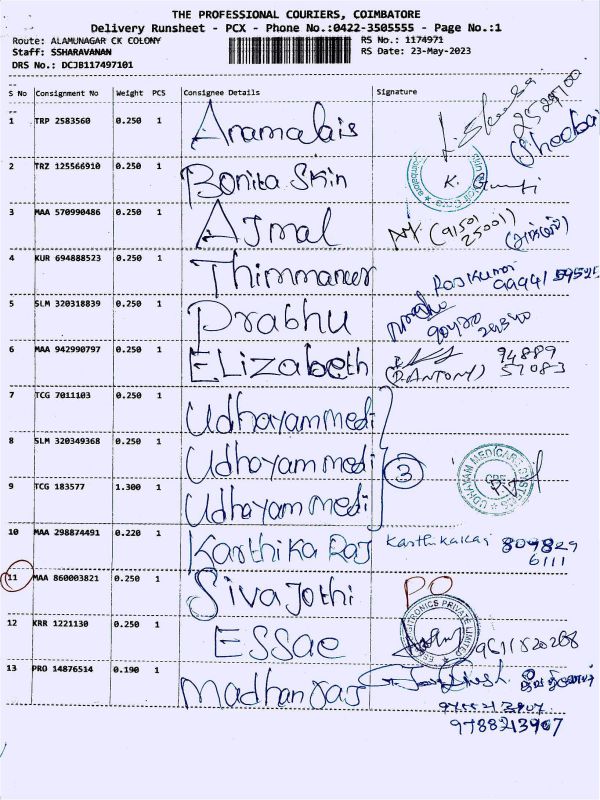 THE PROFESSIONAL COURIERS, COIMBATORE
Delivery Runsheet - PCX - Phone No.:0422-3505555 - Page No.:1
Route: ALAMUNAGAR CK COLONY RS No.: 1174971
Staff: SSHARAVANAN RS Date: 23-May-2023
DRS No.: DCJB117497101
S No Consignment No Weight PCS Consignee Details Signature
1 TRP 2583560 0.250 1 Anamalais
2 TRZ 125566910 0.250 1 Bonita Skin K.
3 MAA 570990486 0.250 1 Ajmal (91501 25001)
4 KUR 694888523 0.250 1 Thimmanur Rajkumar
5 SLM 320318839 0.250 1 Prabhu
6 MAA 942990797 0.250 1 ELizabeth (D.ANTONY) 94889 57083
7 TCG 7011103 0.250 1 Udhayam medi
8 SLM 320349368 0.250 1 Udhayam medi 3
9 TCG 183577 1.300 1 Udhayam medi UDHAYAM MEDICARE
10 MAA 298874491 0.220 1 Karthika Raj 809829 6111
11 MAA 860003821 0.250 1 Siva Jothi PO
12 KRR 1221130 0.250 1 ESSAE
13 PRO 14876514 0.190 1 Madhanraj
9788213907